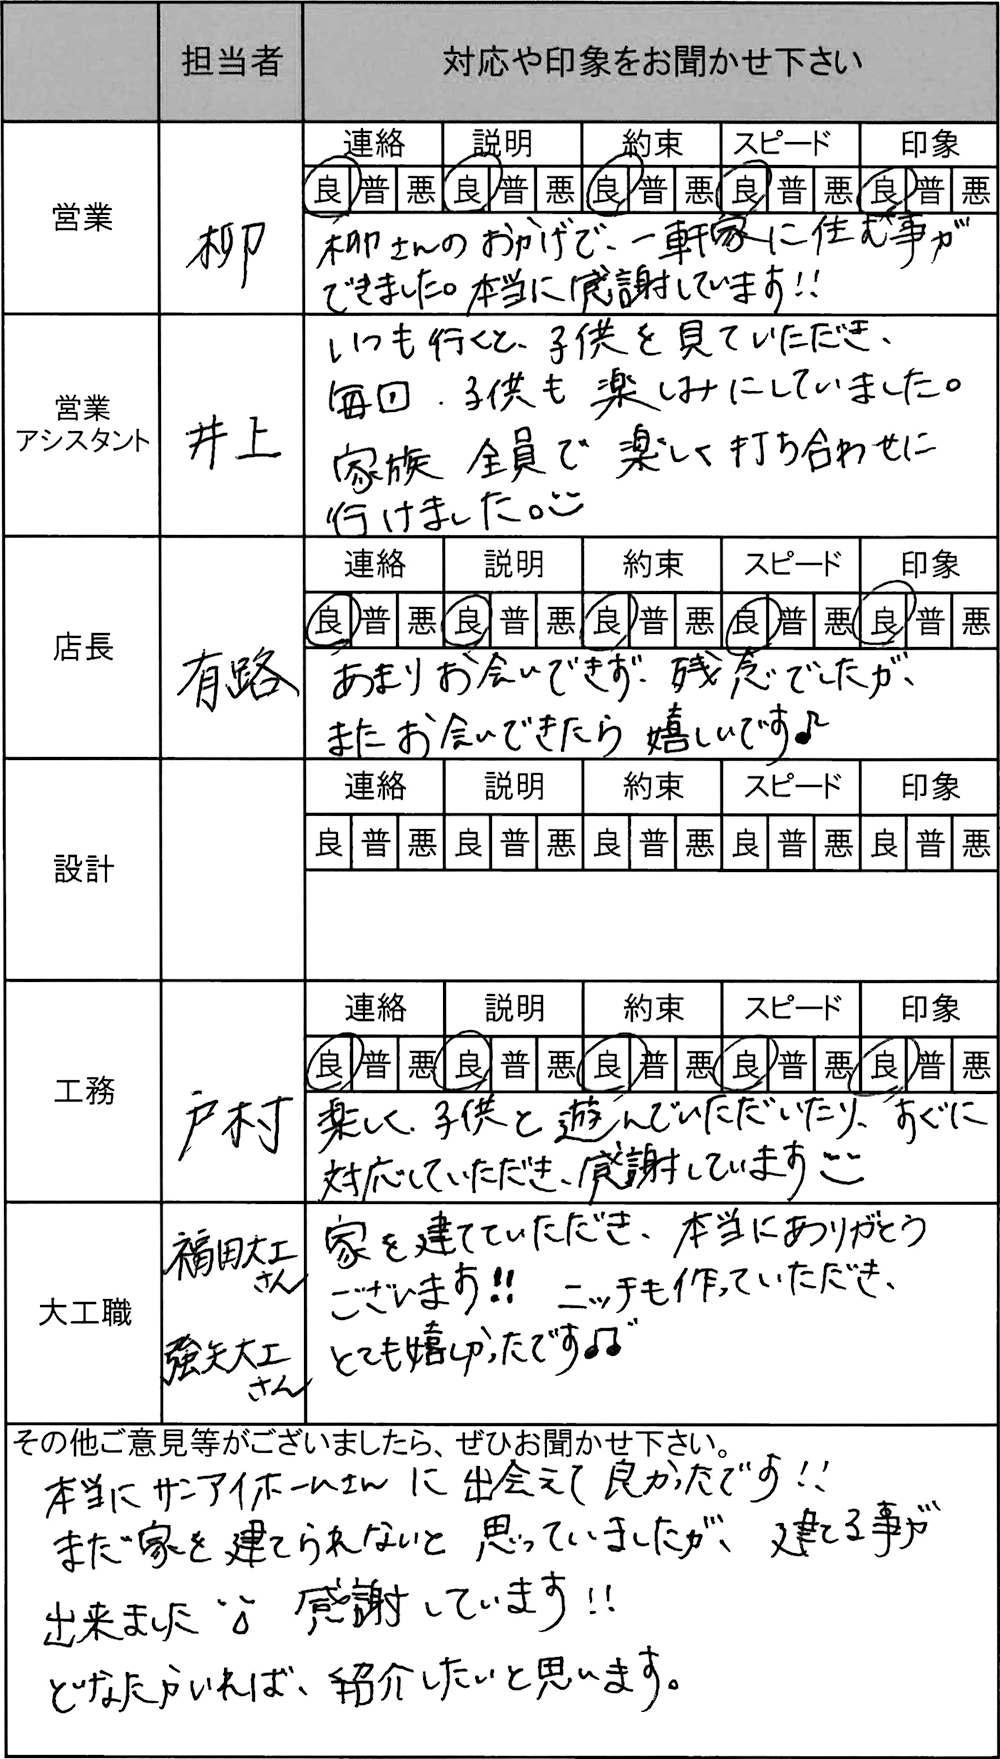 担当者 対応や印象をお聞かせ下さい
連絡 説明 約束 スピード 印象
良 普 悪 良 普 悪 良 普 悪 良 普 悪 良 普 悪
営業
柳
柳さんのおかげで、一軒家に住む事が
できました。本当に感謝しています!!
営業
アシスタント
井上
いつも行くと、子供を見ていただき、
毎回、子供も楽しみにしていました。
家族全員で楽しく打ち合わせに
行けました。
連絡 説明 約束 スピード 印象
良 普 悪 良 普 悪 良 普 悪 良 普 悪 良 普 悪
店長
有路
あまりお会いできず、残念でしたが、
またお会いできたら嬉しいです♪
連絡 説明 約束 スピード 印象
良 普 悪 良 普 悪 良 普 悪 良 普 悪 良 普 悪
設計
連絡 説明 約束 スピード 印象
良 普 悪 良 普 悪 良 普 悪 良 普 悪 良 普 悪
工務
戸村
楽しく、子供と遊んでいただいたり、すぐに
対応していただき、感謝しています
大工職
福田大工
さん
強矢大工
さん
家を建てていただき、本当にありがとう
ございます!! ニッチも作っていただき、
とても嬉しかったです♪♫
その他ご意見等がございましたら、ぜひお聞かせ下さい。
本当にサンアイホームさんに出会えて良かったです!!
まだ家を建てられないと思っていましたが、建てる事が
出来ました 感謝しています!!
どなたかいれば、紹介したいと思います。